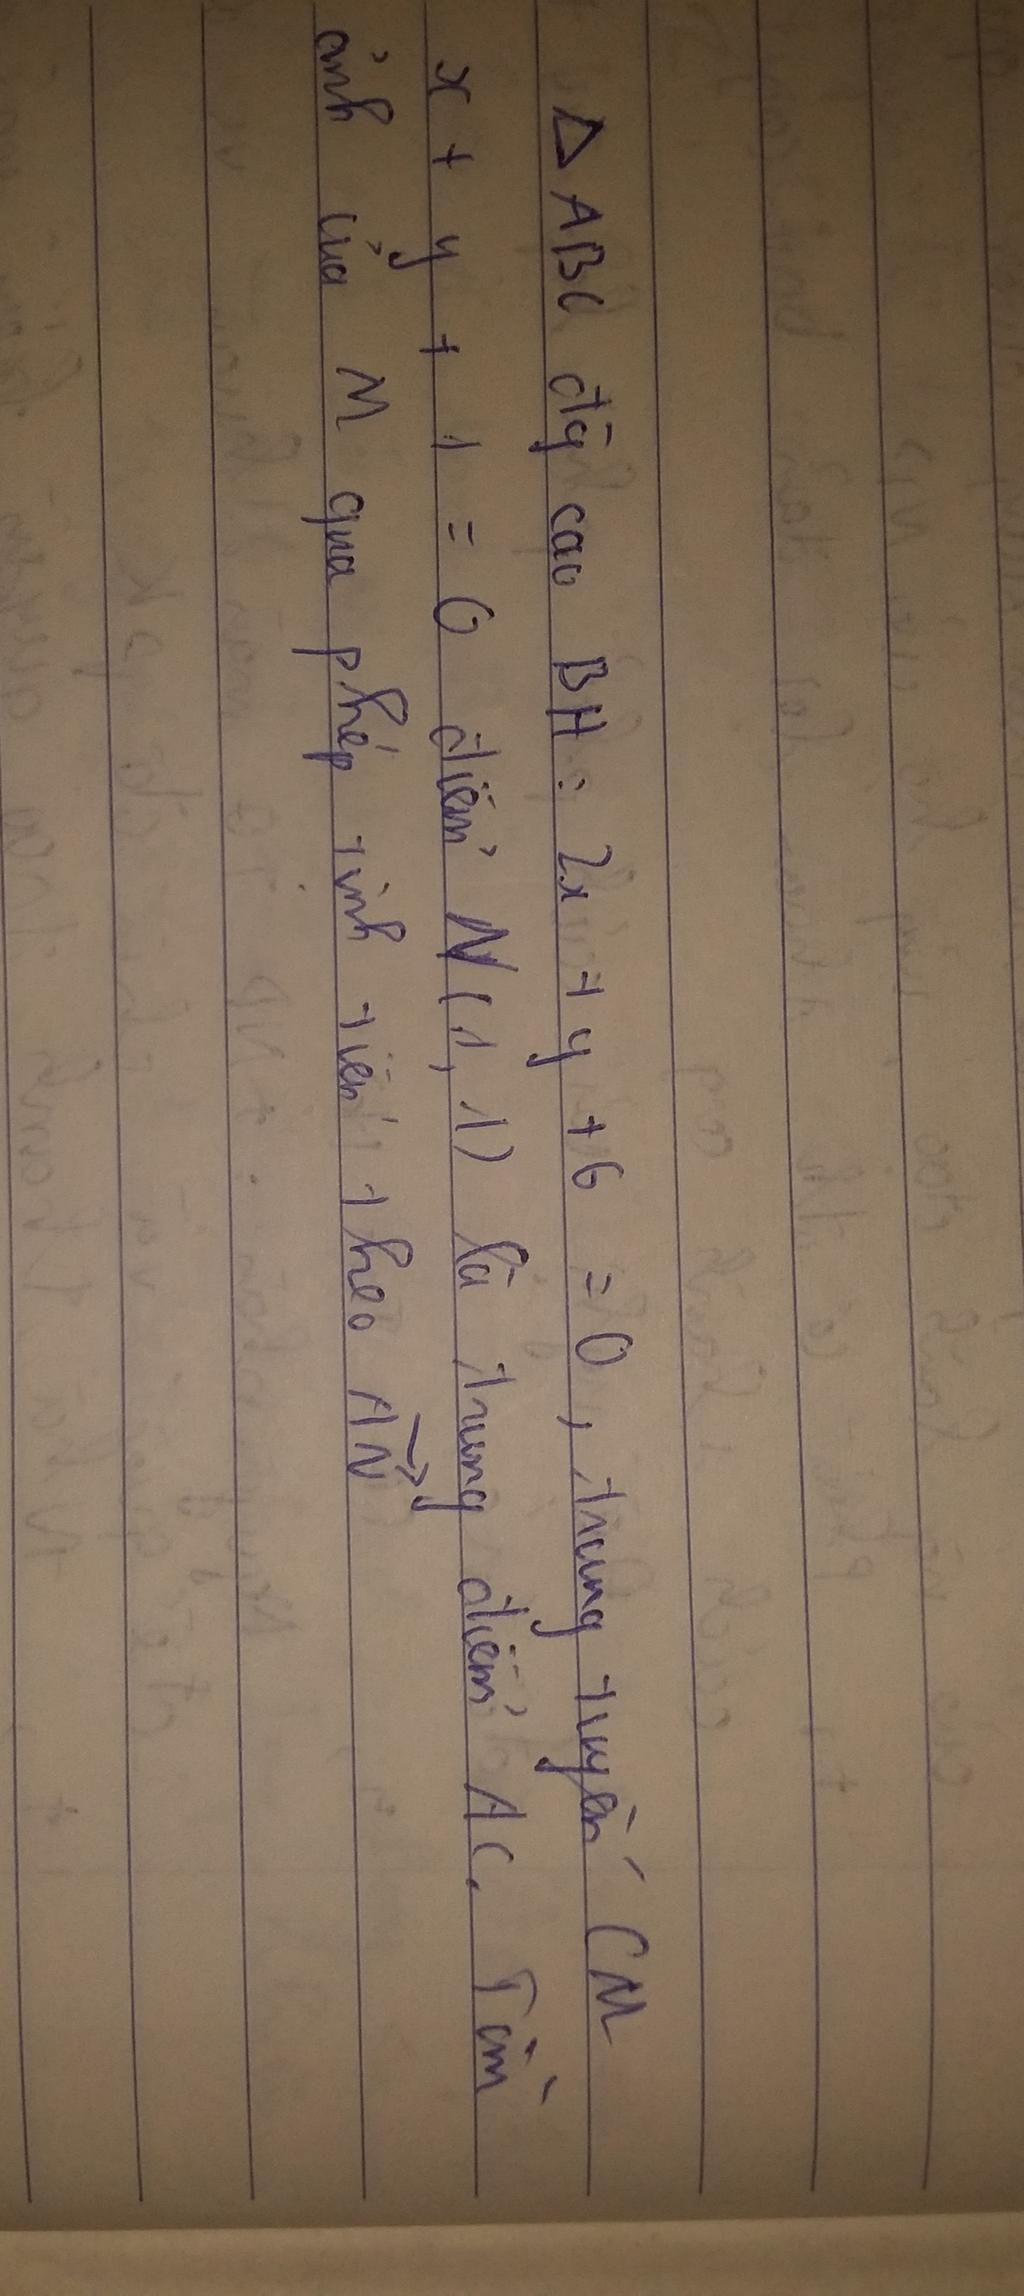 △ ABC đg cao BH: 2x + y + 6 = 0, trung tuyến CM
x + y + 1 = 0 điểm N(1, 1) là trung điểm AC. Tìm
ảnh của M qua phép tịnh tiến theo AN→